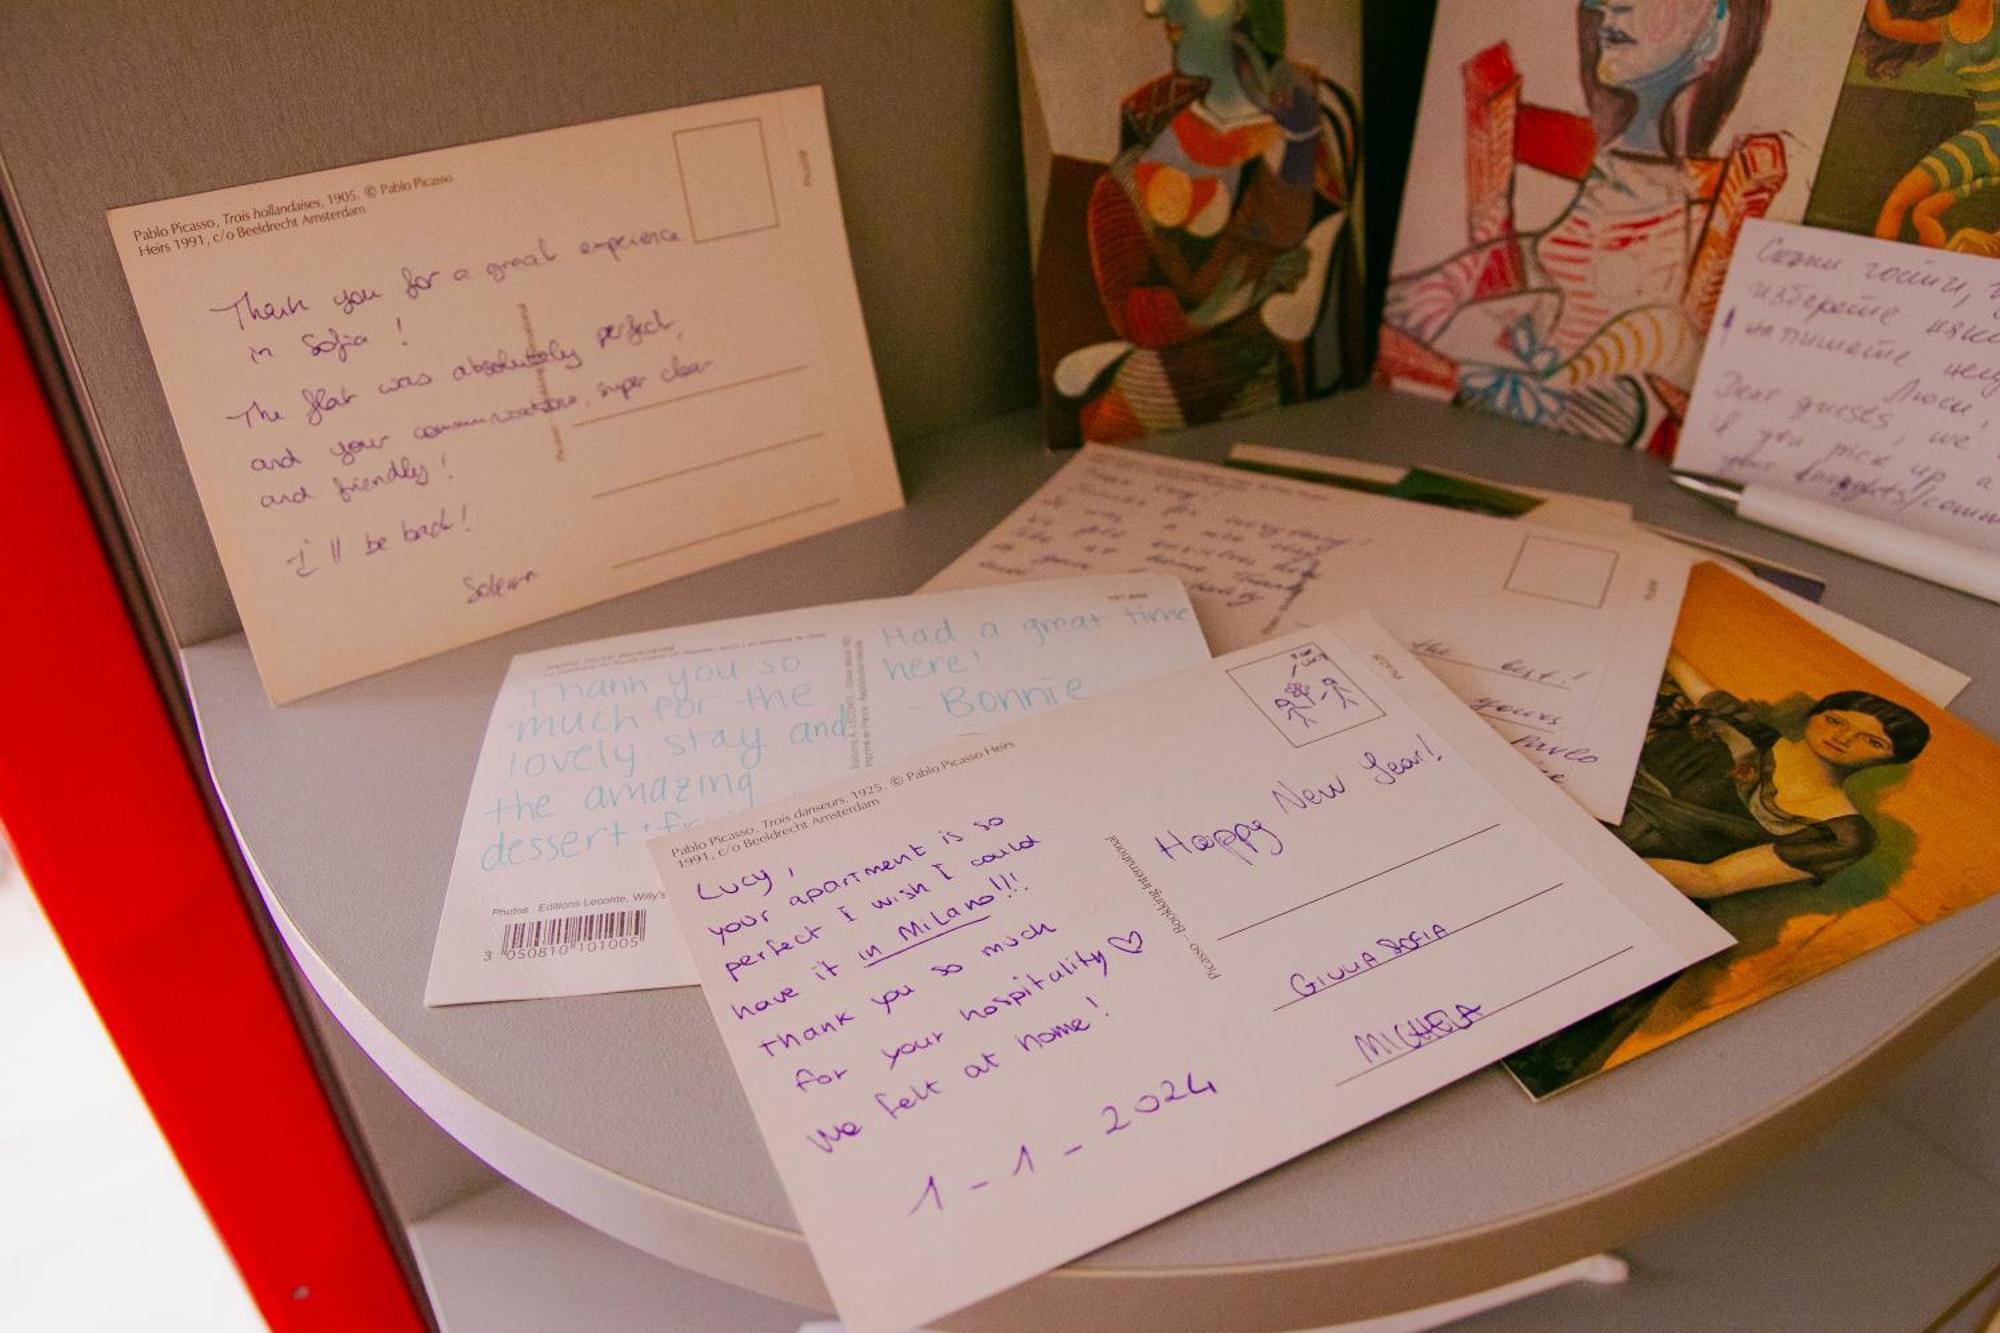 Pablo Picasso, Trois hollandaises, 1905. © Pablo Picasso
Heirs 1991, c/o Beeldrecht Amsterdam
Picasso
Thank you for a great experience
in Sofia !
The flat was absolutely perfect,
and your communication, super clear
and friendly !
I'll be back!
Thank you so
much for the
lovely stay and
the amazing
dessert +
Had a great time
here!
- Bonnie
Photos : Editions Leconte, Willy's
3 050810 101005
for everything!
the best!
yours
Pavlo
Pablo Picasso, Trois danseurs, 1925. © Pablo Picasso Heirs
1991, c/o Beeldrecht Amsterdam
Lucy,
your apartment is so
perfect I wish I could
have it in Milano!!!
Thank you so much
for your hospitality ♡
We felt at home!
1-1-2024
Picasso – Bookking International
Picasso
Happy New Year!
GIULIA SOFIA
MICHELA
изберете
напишете
Люси
Dear guests, we
if you pick up a
your thoughts/comm